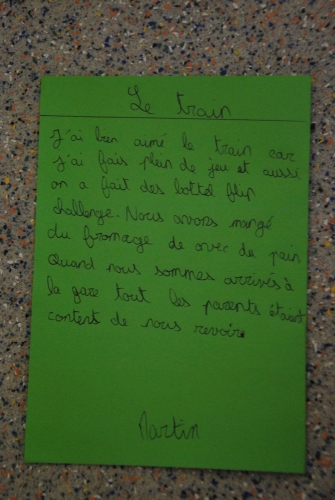 Le train
J'ai bien aimé le train car
j'ai fais plein de jeu et aussi
on a fait des bottel flip
challenge. Nous avons mangé
du fromage de avec de pain
Quand nous sommes arrivés à
la gare tout les parents étaient
contents de nous revoire
Martin